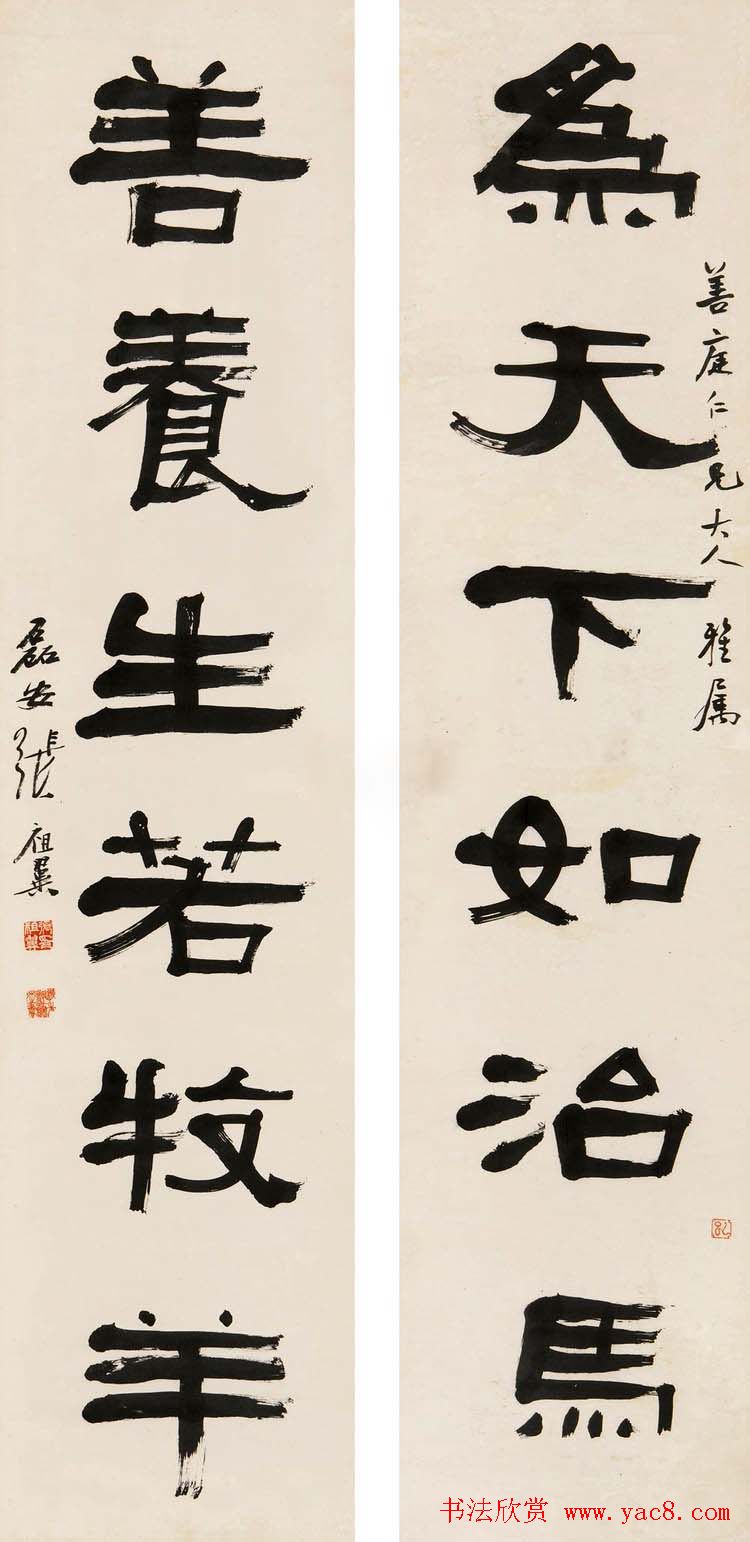 為天下如治馬
善庭仁兄大人 雅属
善養生若牧羊
磊盦張祖翼
书法欣赏 www.yac8.com